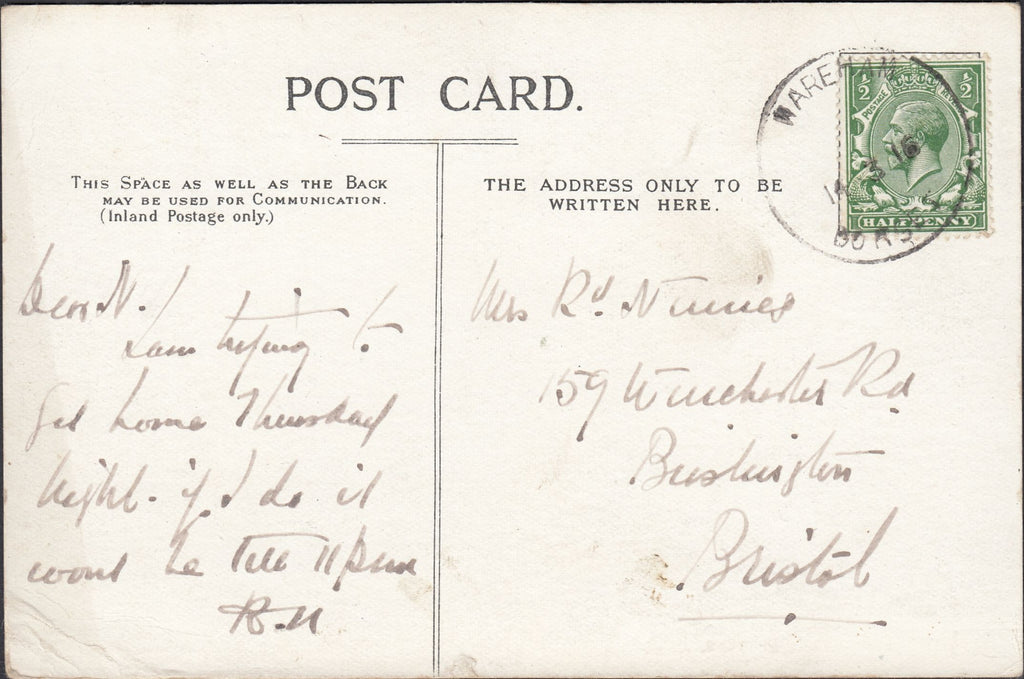 POST CARD.
THIS SPACE AS WELL AS THE BACK
MAY BE USED FOR COMMUNICATION.
(Inland Postage only.)
THE ADDRESS ONLY TO BE
WRITTEN HERE.
WAREHAM
14 3 16
DORSET
POSTAGE
1/2 1/2
HALFPENNY
Dear N.
I am trying to
get home Thursday
night. if I do it
wont be till 11 pm
R.N
Mrs Rd
159 Winchester Rd
Brislington
Bristol